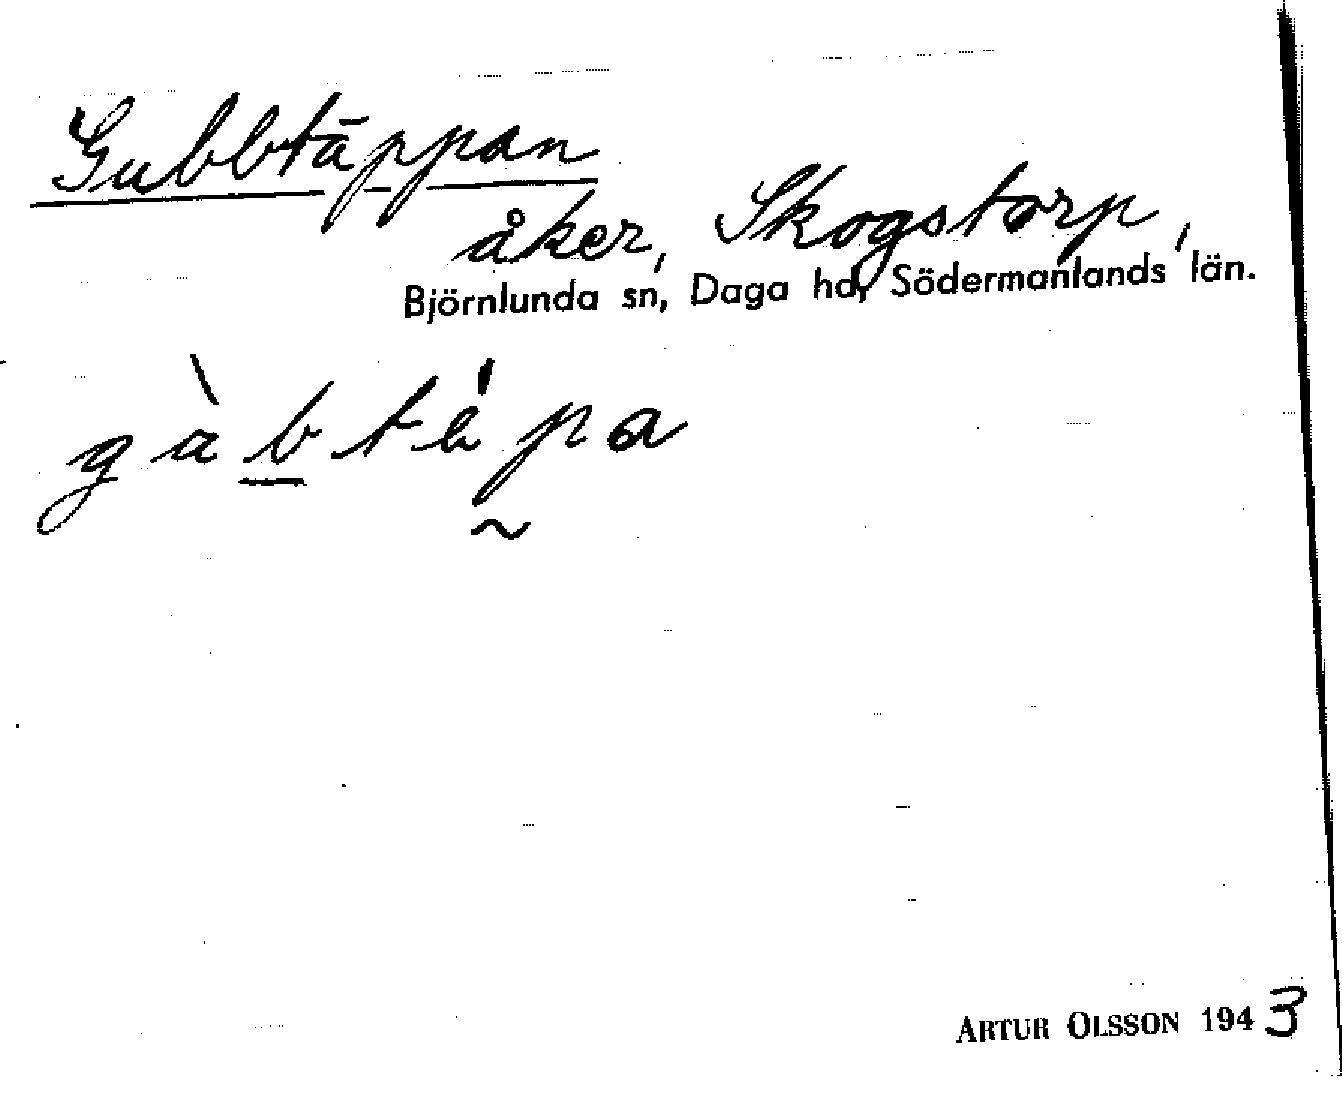 Gubbtäppan
åker, Skogstorp,
Björnlunda sn, Daga hd, Södermanlands län.
gàbtépa
ARTUR OLSSON 1943